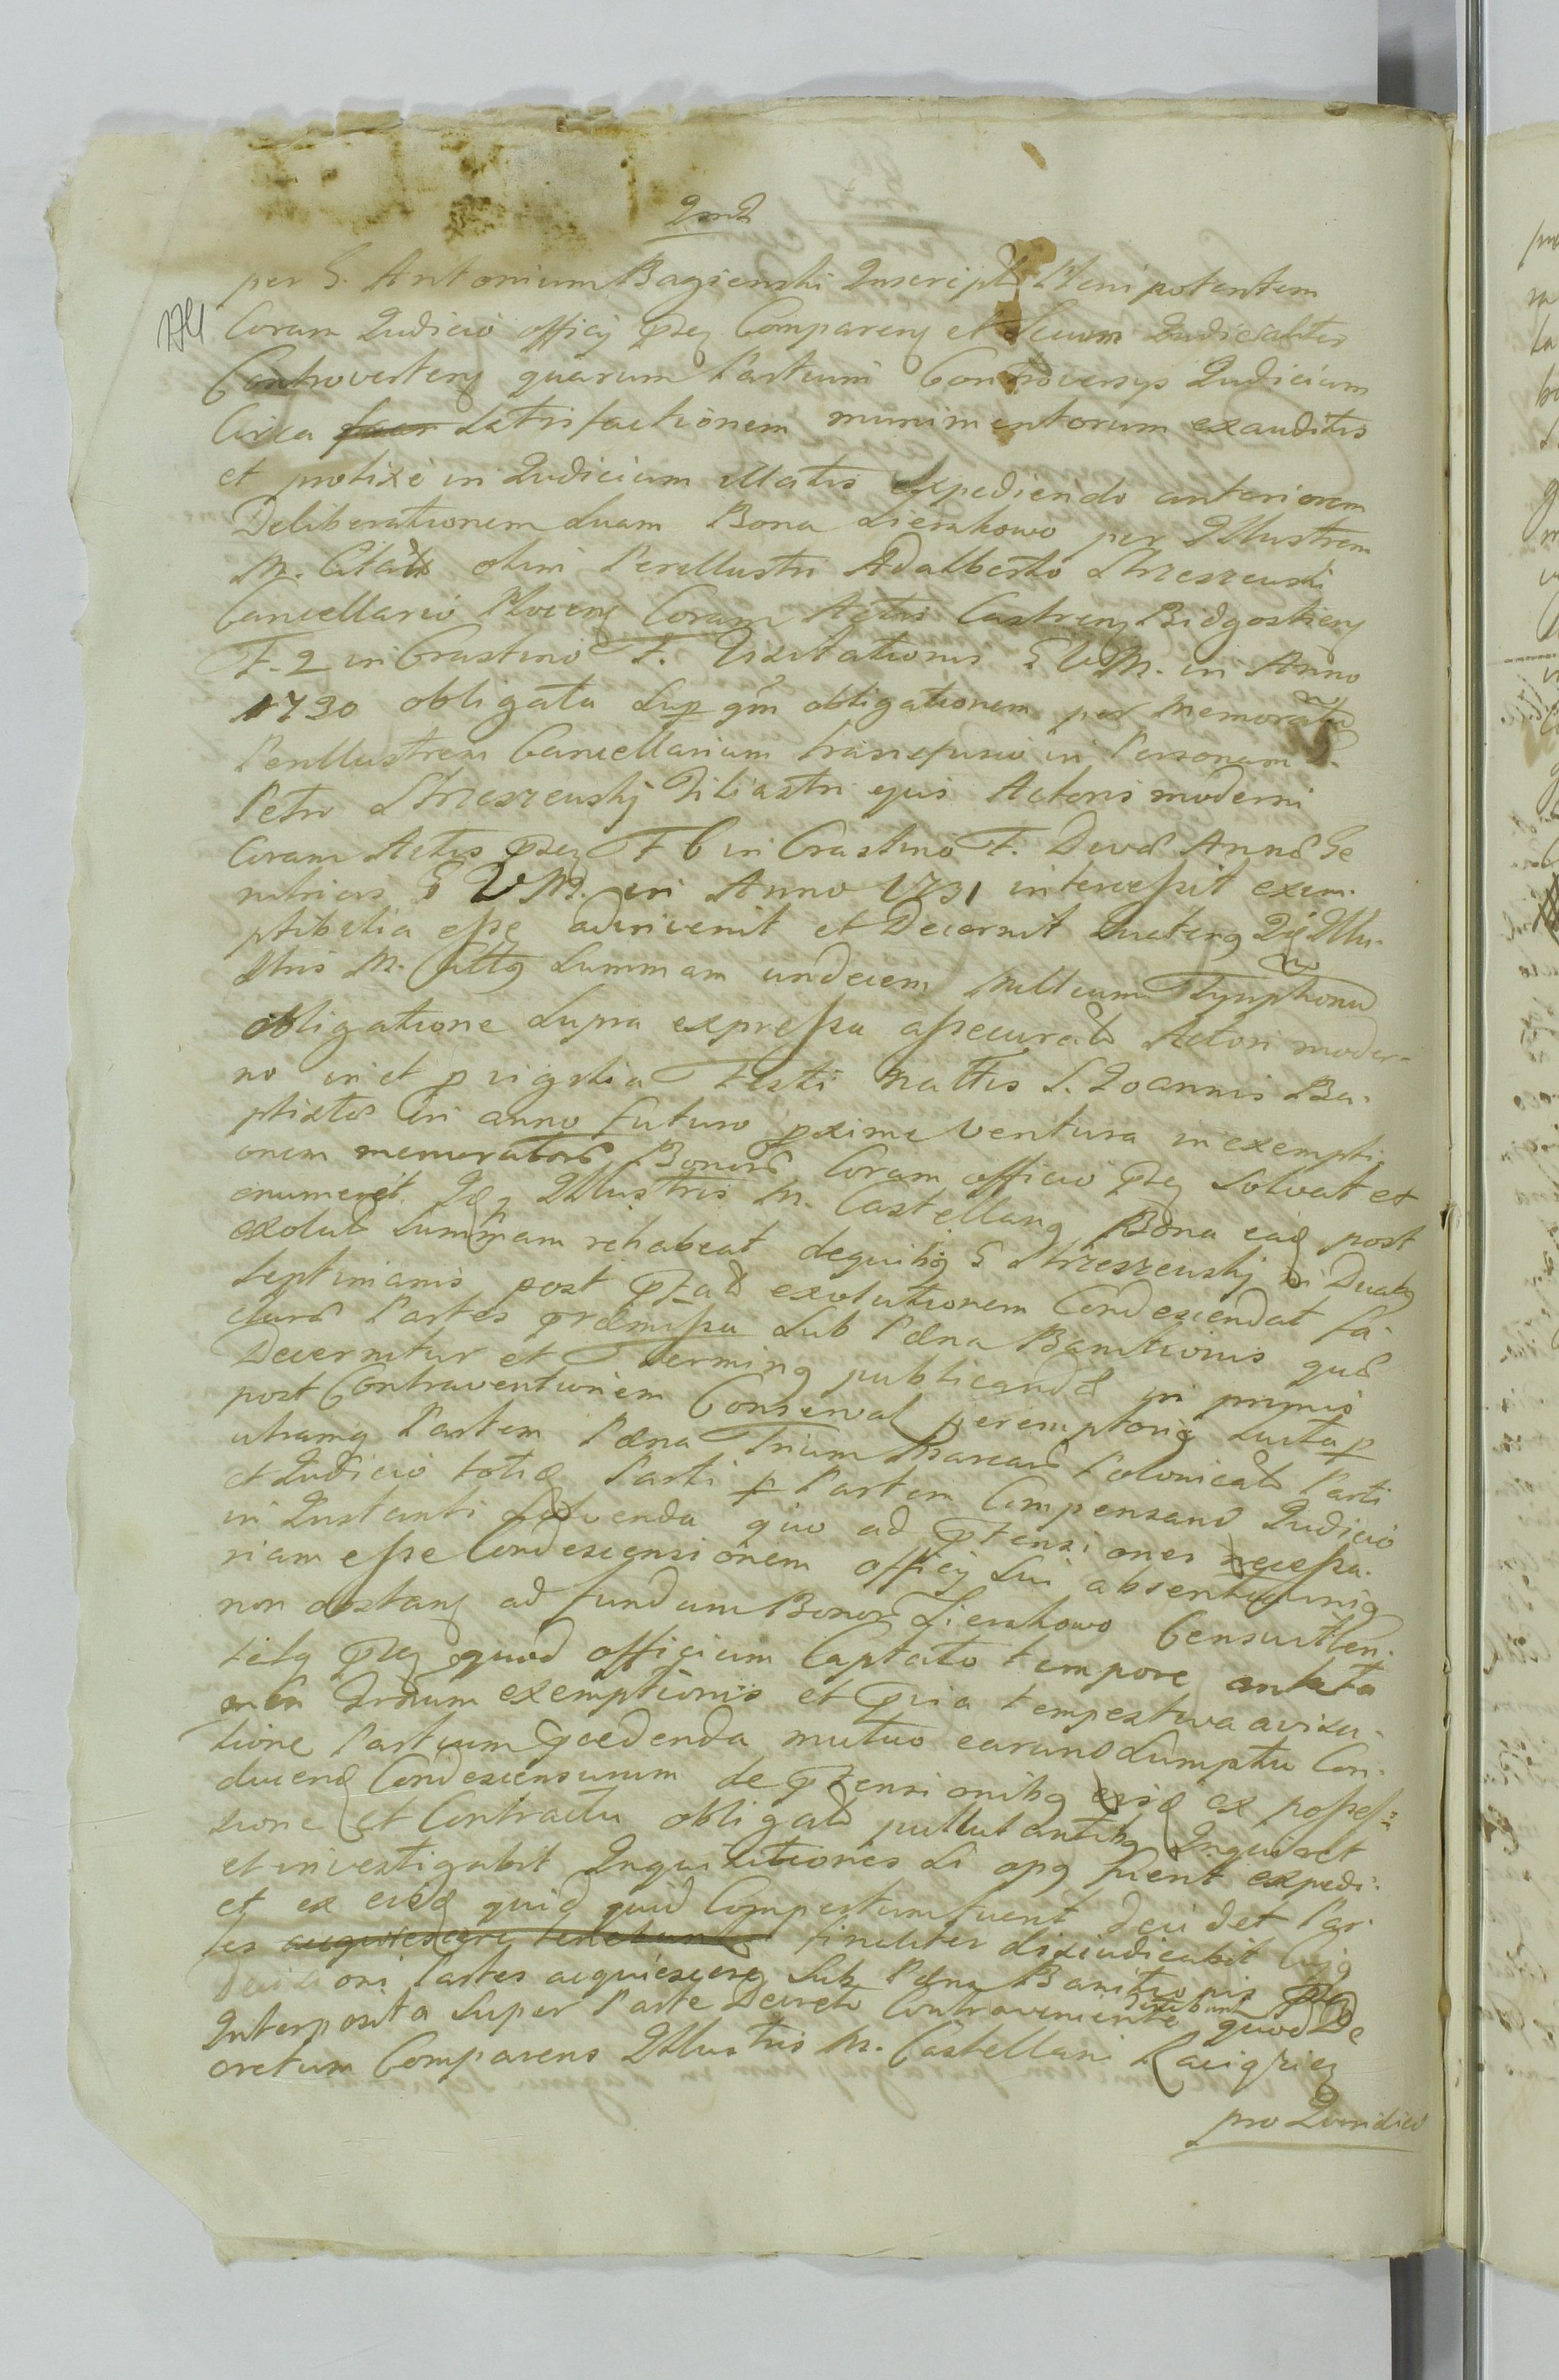 per G. Antonium Bagienski Inscript Plenipotentem
Coram Judicio officij Comparens et Secum Judicialiter
Controvertens quarum Partium Controversijs Judicium
Circa satisfactionem munimentorum exauditis
et prolixè in Judicium illatis expediendo anteriorem
Deliberationem suam Bona Sienkowo per Illustrem
M. olim Perillustri Adalberto Strzeszewski
Cancellario Plocens Coram Actis Castrens Bidgostiens
F. 2 in Crastino F. Visitationis B V M. in Anno
1730 obligata Sup qm obligationem per memoratu
Perillustrem Cancellarium transfusio in Personam G.
Petri Strzeszewskij Filiastri ejus Actoris moderni
Coram Actis F 6 in Crastino F. Divae Annae Ge
nitricis B V M. in Anno 1731 intercessit exem-
ptibilia esse adinvenit et Decernit Illu-
stris M. Summam undecem millium Tynphonu
obligatione supra expressa assecurat Actori moder-
no in et p vigilia Festi Nattis S. Joannis Ba-
ptistae in anno futuro pxime ventura in exempti-
onem memorator Bonor Coram officio Solvat et
enumeret. Illustris M. Castellang Bona ead post
exolut Summam rehabeat dequibg G Strzeszewskij in Duabg
Septimanis post exolutionem Condescendat fa-
Partes praemissa Sub Paena Banitionis quae
Decernitur et Terming publicandae in primis
post Contraventionem Conserval peremptorig
utramq Partem Paena Trium Marcar Polonical Parti
et Judicio toties Parti p Partem Compensand Judicio
in Instanti Solvenda quo ad ptensiones necessa-
riam esse Condescensionem officij Sui
non obstang ad fundum Bonor Sienkowo Censuit
quod officium Captato tempore
exemptionis et tempestiva avisa-
tione Partium pcedenda mutuo earund Sumptu Con-
ducend Condescensurum de ptensionibg ex posses-
sione et Contractu obligat pullulantibg Inquiret
et investigabit Inquisitiones si opg fuerit expedi-
et ex quid quid Compertum fuerit decidet Par-
tes acquiescere tenebunt finaliter disjudicabit Cujg
Decisioni Partes acquiescere Sub Paena Banitionis
Interposita Super Parte Decreto Contraveniente tenebunt quod De
cretum Comparens Illustris M. Castellani
pro Juridico